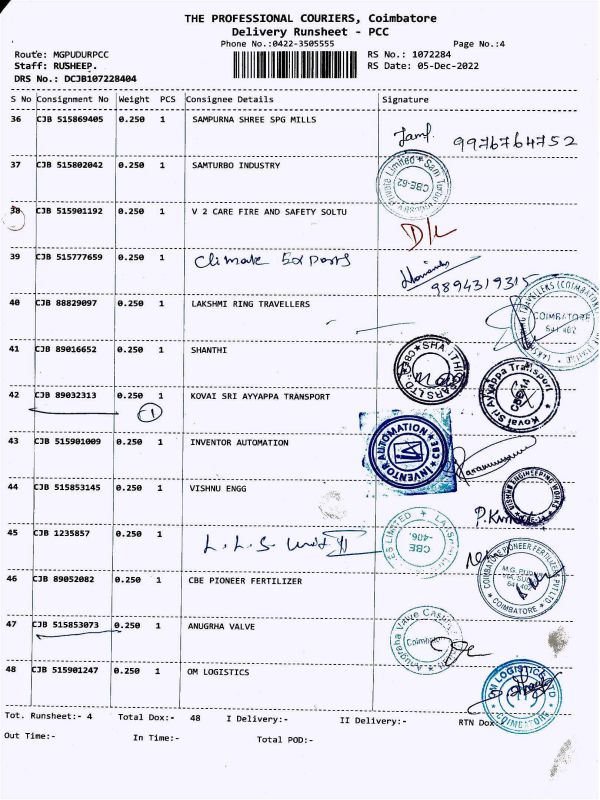 THE PROFESSIONAL COURIERS, Coimbatore
Delivery Runsheet - PCC
Phone No.:0422-3505555 Page No.:4
Route: MGPUDURPCC RS No.: 1072284
Staff: RUSHEEP. RS Date: 05-Dec-2022
DRS No.: DCJB107228404
S No Consignment No Weight PCS Consignee Details Signature
36 CJB 515869405 0.250 1 SAMPURNA SHREE SPG MILLS
9976764752
37 CJB 515802042 0.250 1 SAMTURBO INDUSTRY
Private Limited * Sam Turbo
CBE-62
38 CJB 515901192 0.250 1 V 2 CARE FIRE AND SAFETY SOLTU
D/L
39 CJB 515777659 0.250 1 Climate
9894319315
40 CJB 88829097 0.250 1 LAKSHMI RING TRAVELLERS
TRAVELLERS (COIMBATORE
COIMBATORE
641 402
41 CJB 89016652 0.250 1 SHANTHI
42 CJB 89032313 0.250 1 KOVAI SRI AYYAPPA TRANSPORT
Kovai Sri Ayyappa Transport
43 CJB 515901009 0.250 1 INVENTOR AUTOMATION
INVENTOR AUTOMATION * CBE *
44 CJB 515853145 0.250 1 VISHNU ENGG
VISHNU ENGINEERING WORKS
45 CJB 1235857 0.250 1 L.L.S. Unit II
LIMITED
CBE
-406.
46 CJB 89052082 0.250 1 CBE PIONEER FERTILIZER
COIMBATORE PIONEER FERTILIZERS PVT LTD
* COIMBATORE *
47 CJB 515853073 0.250 1 ANUGRHA VALVE
Anugraha Valve Castings
Coimbatore
48 CJB 515901247 0.250 1 OM LOGISTICS
OM LOGISTICS LTD
* COIMBATORE *
Tot. Runsheet:- 4 Total Dox:- 48 I Delivery:- II Delivery:- RTN Dox:-
Out Time:- In Time:- Total POD:-